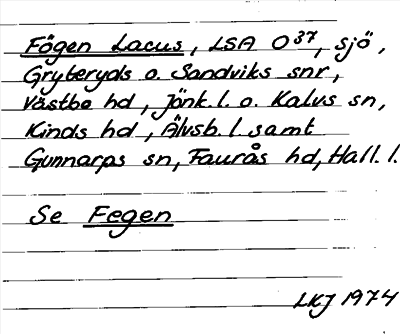 Fögen Lacus, LSA O 37, sjö,
Gryteryds o. Sandviks snr,
Västbo hd, Jönk. l. o. Kalvs sn,
Kinds hd, Älvsb. l. samt
Gunnarps sn, Faurås hd, Hall. l.
Se Fegen
LKJ 1974